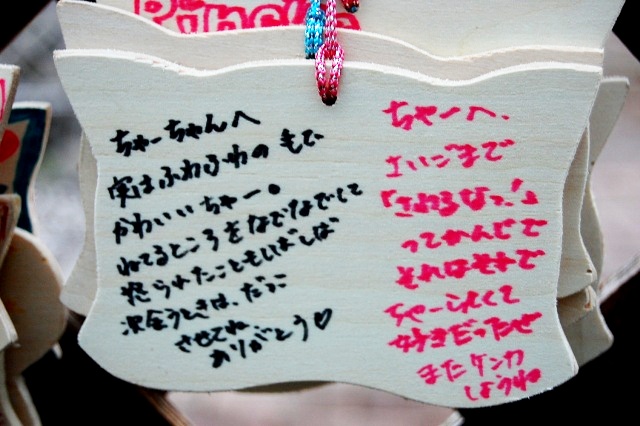 Pinoko
ちゃーちゃんへ
実はふわふわの もで
かわいいちゃー。
ねてるところをなでなでして
怒られたこともしばしば
次会うときは、だっこ
させてね
ありがとう♡
ちゃーへ、
さいごまで
「さわるなっ!」
ってかんじで
それはそれで
ちゃーらしくて
好きだったぜ
またケンカ
しようね